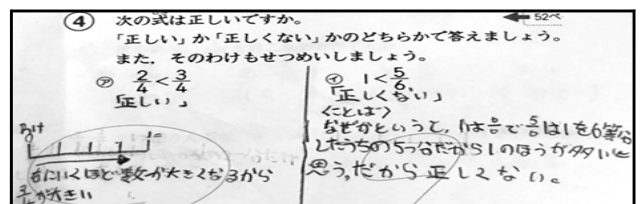 ④ 次の式は正しいですか。
52ペ
「正しい」か「正しくない」かのどちらかで答えましょう。
また，そのわけもせつめいしましょう。
㋐ 2/4 < 3/4
「正しい」
わけ
右にいくほど数が大きくなるから
3/4が大きい
㋑ 1 < 5/6
「正しくない」
〈ことば〉
なぜかというと、1は6/6で5/6は1を6等分
したうちの5つ分だから1のほうが多いと
思う。だから正しくない。